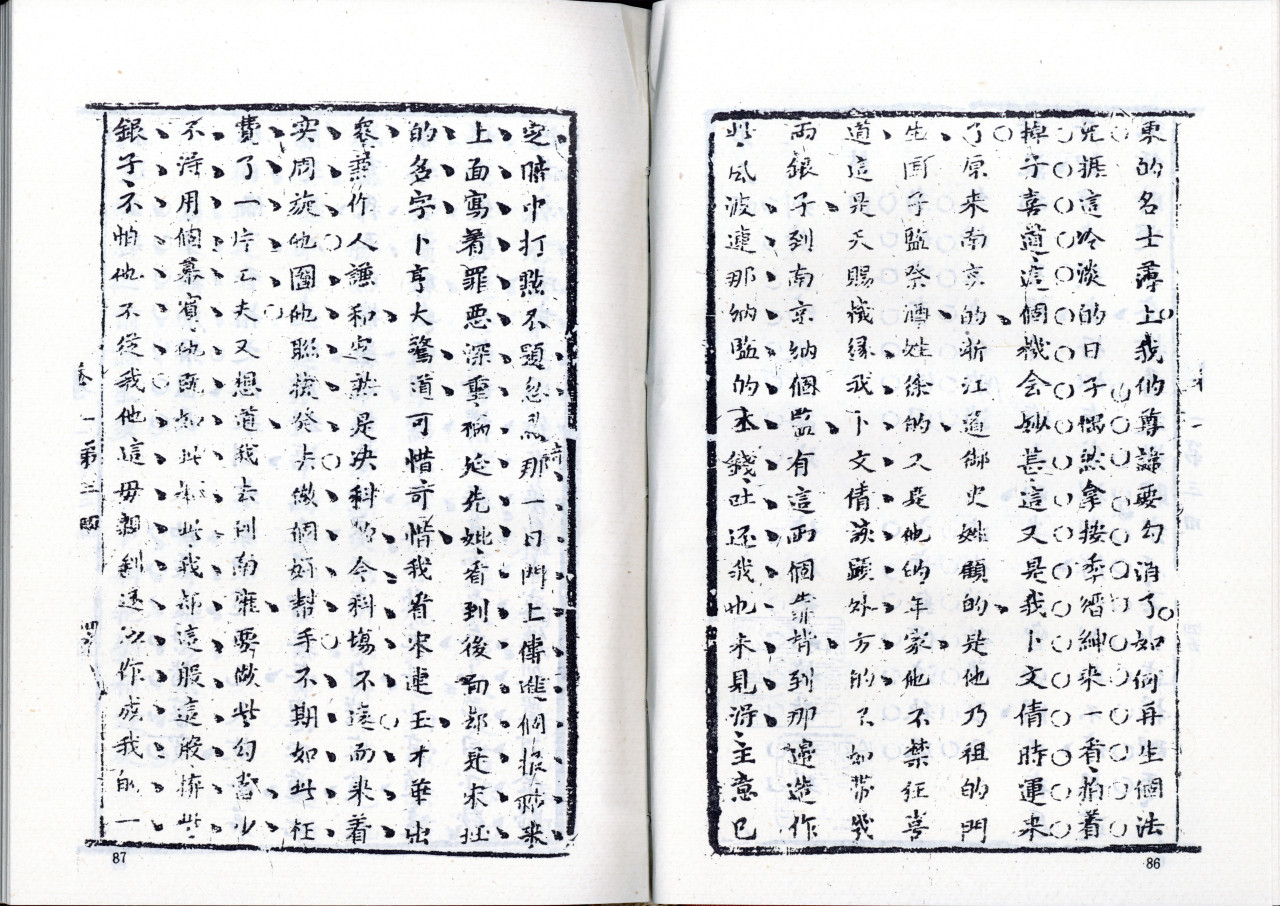 東的名士薄上我们尊諱要勾消了如何再生個法
児捱這冷淡的日子偶然拿按季縉紳来一看拍着
掉子喜道這個機会妙甚這又是我卜文倩時運来
了原来南京的浙江道御史姓顧的是他乃祖的門
生國子監祭酒姓徐的又是他的年家他不禁狂喜
道這是天賜機縁我卜文倩該顕外方的了如帶幾
両銀子到南京納個監有這両個靠背到那邊造作
些風波連那納監的本錢吐還我也未見得主意已
定暗中打點不題忽然那一日門上傳進個報帖来
上面寫着罪恶深重禍延先妣看到後面却是宋珏
的名字卜亨大驚道可惜可惜我看宋連玉才華出
衆兼作人謙和定然是决科的今科塲不遠而来着
实周旋他團他聯捷發去做個好幫手不期如此枉
費了一片工夫又想道我去到南雍要做些勾當少
不得用個幕賓他既如此如此我都這般這般擠些
銀子不怕他不從我他這毋親到遂以作成我的一
卷一 第三回
87
86